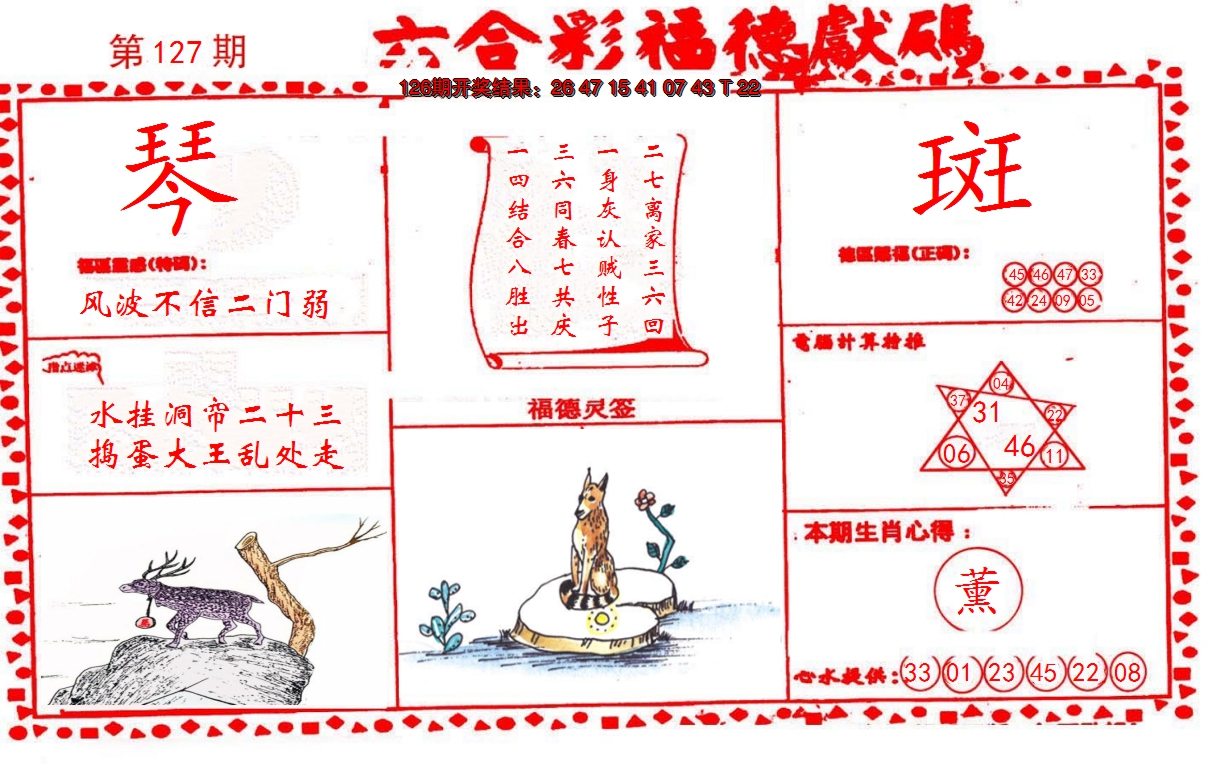 第127期
六合彩福德獻碼
126期开奖结果：26 47 15 41 07 43 T 22
琴
福區靈感(特碼)：
风波不信二门弱
指点迷津
水挂洞帘二十三
捣蛋大王乱处走
二七离家三六回
一身灰认贼性子
三六同春七共庆
一四结合八胜出
福德灵签
斑
德區賜福(正碼)：
45 46 47 33
42 24 09 05
電腦计算拾推
04
37 31 22
06 46 11
35
本期生肖心得：
薰
心水提供：33 01 23 45 22 08